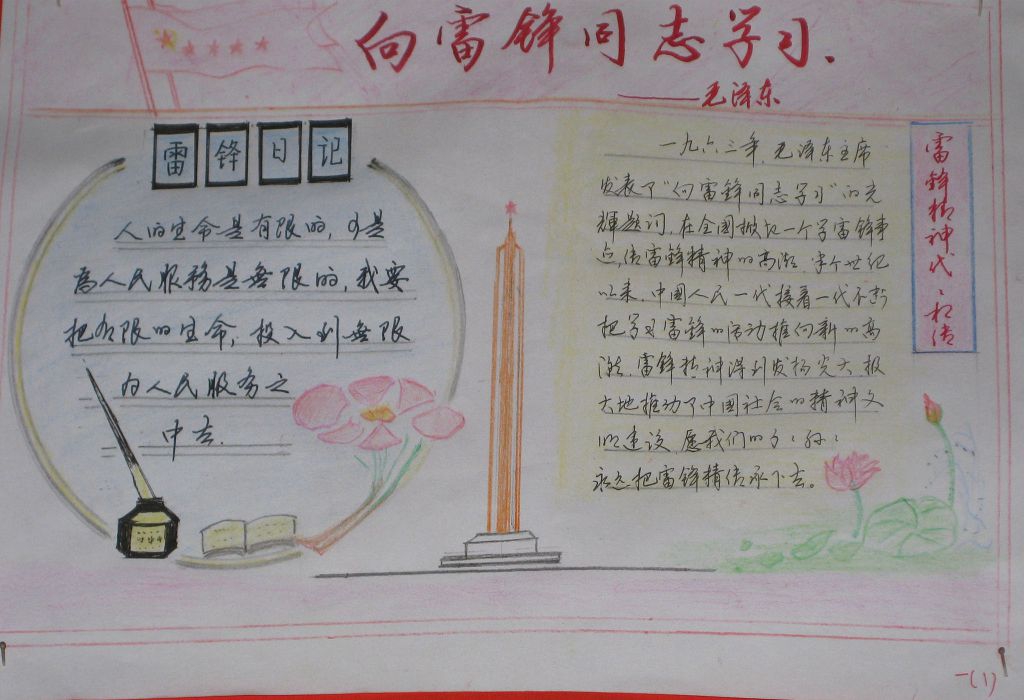 向雷锋同志学习.
——毛泽东
雷锋日记
人的生命是有限的,可是
为人民服务是无限的,我要
把有限的生命,投入到无限
的人民服务之
中去.
一九六三年,毛泽东主席
发表了“向雷锋同志学习”的光
辉题词,在全国掀起一个学雷锋事
点,传雷锋精神的高潮.半个世纪
以来,中国人民一代接着一代不断
把学习雷锋的活动推向新的高
潮.雷锋精神得到发扬光大,极
大地推动了中国社会的精神文
明建设,愿我们的子子孙孙
永远把雷锋精传承下去。
雷锋精神代代相传
一(1)